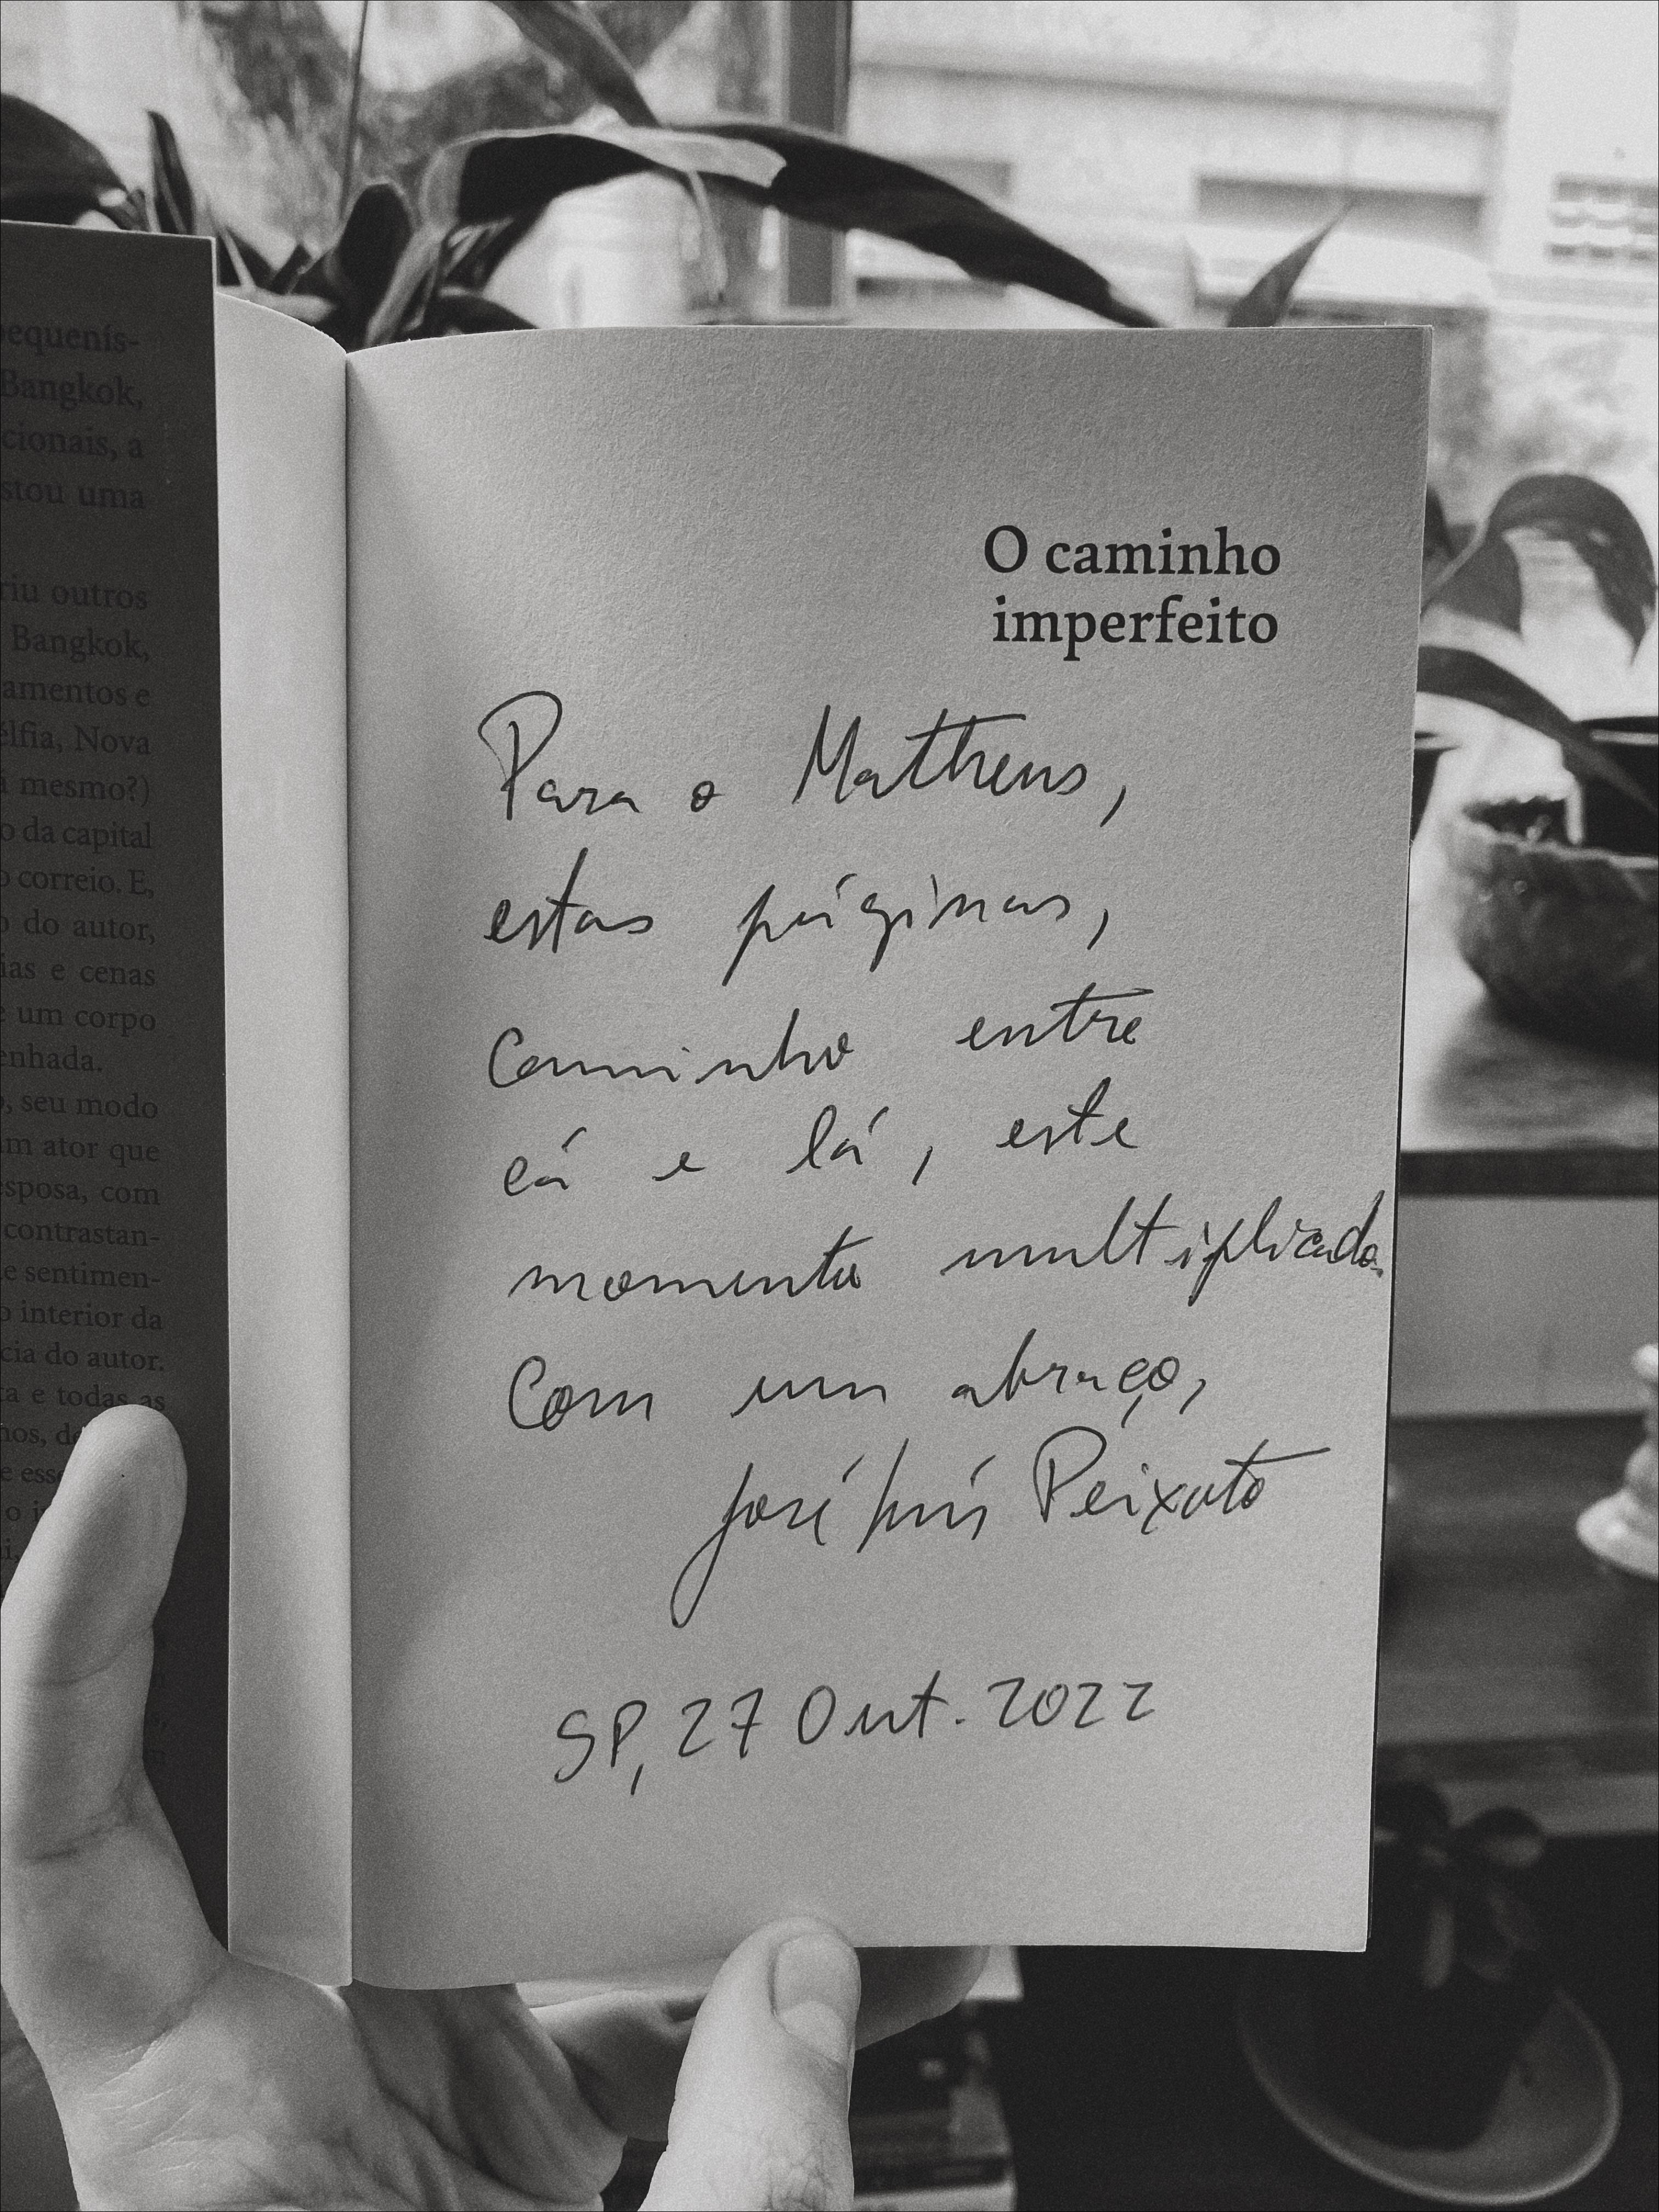 pequenís-
Bangkok,
cionais, a
stou uma
riu outros
Bangkok,
amentos e
élfia, Nova
mesmo?)
o da capital
o correio. E,
o do autor,
ias e cenas
e um corpo
enhada.
o, seu modo
m ator que
esposa, com
contrastan-
e sentimen-
o interior da
cia do autor.
ta e todas as
O caminho
imperfeito
Para o Matheus,
estas páginas,
caminho entre
cá e lá, este
momento multiplicado.
Com um abraço,
José Luís Peixoto
SP, 27 Out. 2022